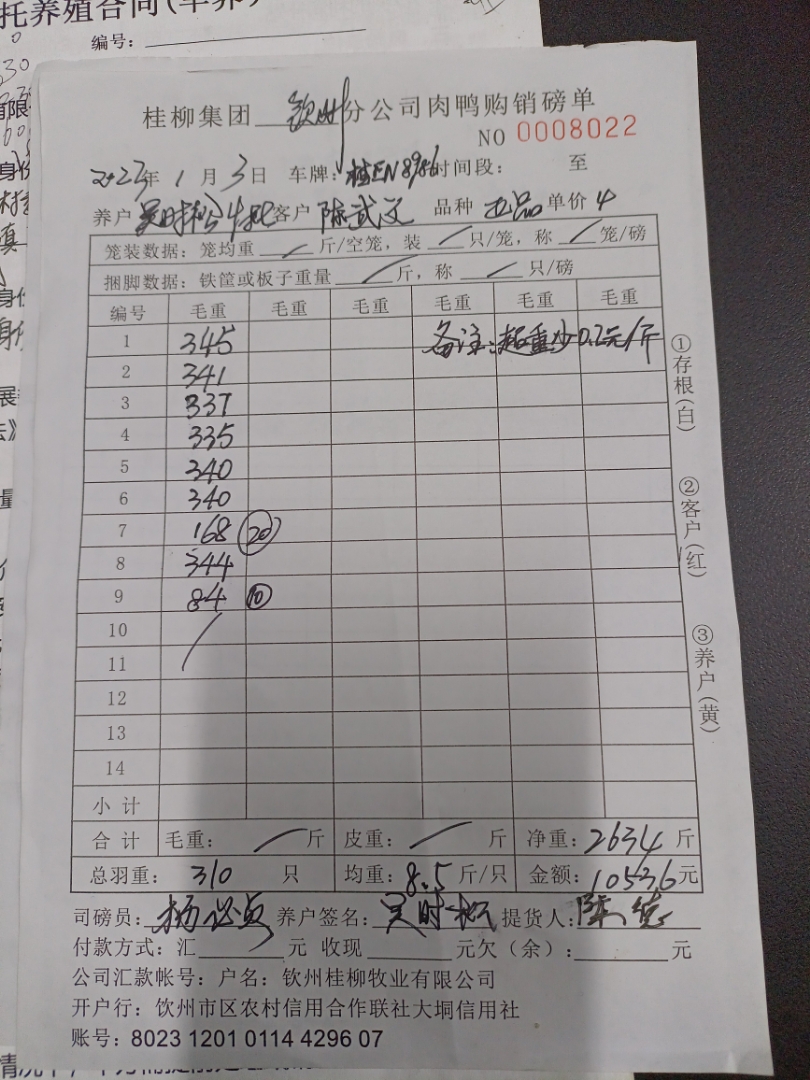 托养殖合同
编号：
桂柳集团 钦州 分公司肉鸭购销磅单
NO 0008022
2023年 1 月 3 日 车牌：桂EN8986 时间段： 至
养户 吴时松4批 客户 陈武文 品种 正品 单价 4
笼装数据：笼均重 / 斤/空笼，装 / 只/笼，称 / 笼/磅
捆脚数据：铁筐或板子重量 / 斤，称 / 只/磅
编号 毛重 毛重 毛重 毛重 毛重 毛重
1 345 备注：超重少0.2元/斤
2 341
3 337
4 335
5 340
6 340
7 168 (20)
8 344
9 84 (10)
10 /
11
12
13
14
小 计
合 计 毛重： / 斤 皮重： / 斤 净重：2634 斤
总羽重： 310 只 均重：8.5 斤/只 金额：10536元
司磅员：杨必贞 养户签名：吴时松 提货人：
付款方式：汇 元 收现 元欠（余）： 元
公司汇款帐号：户名：钦州桂柳牧业有限公司
开户行：钦州市区农村信用合作联社大垌信用社
账号：8023 1201 0114 4296 07
①存根(白)
②客户(红)
③养户(黄)